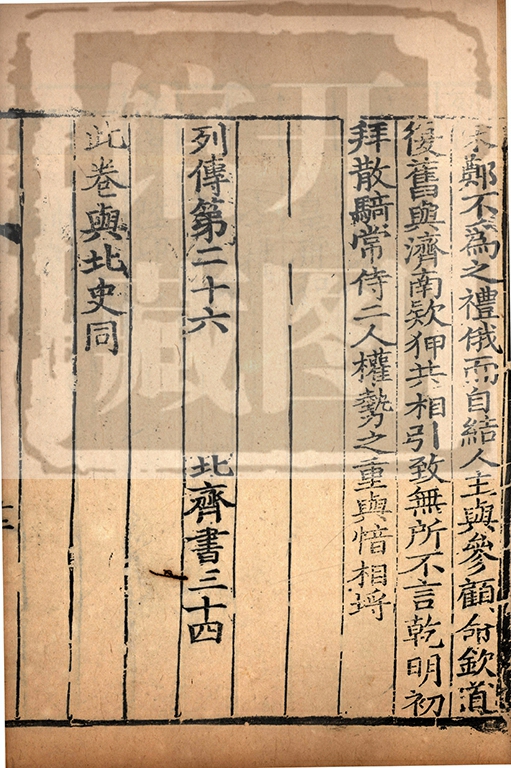 宋鄭不為之禮俄而自結人主與參顧命欽道
復舊與濟南欵狎共相引致無所不言乾明初
拜散騎常侍二人權勢之重與愔相埒
列傳第二十六 北齊書三十四
此卷與北史同